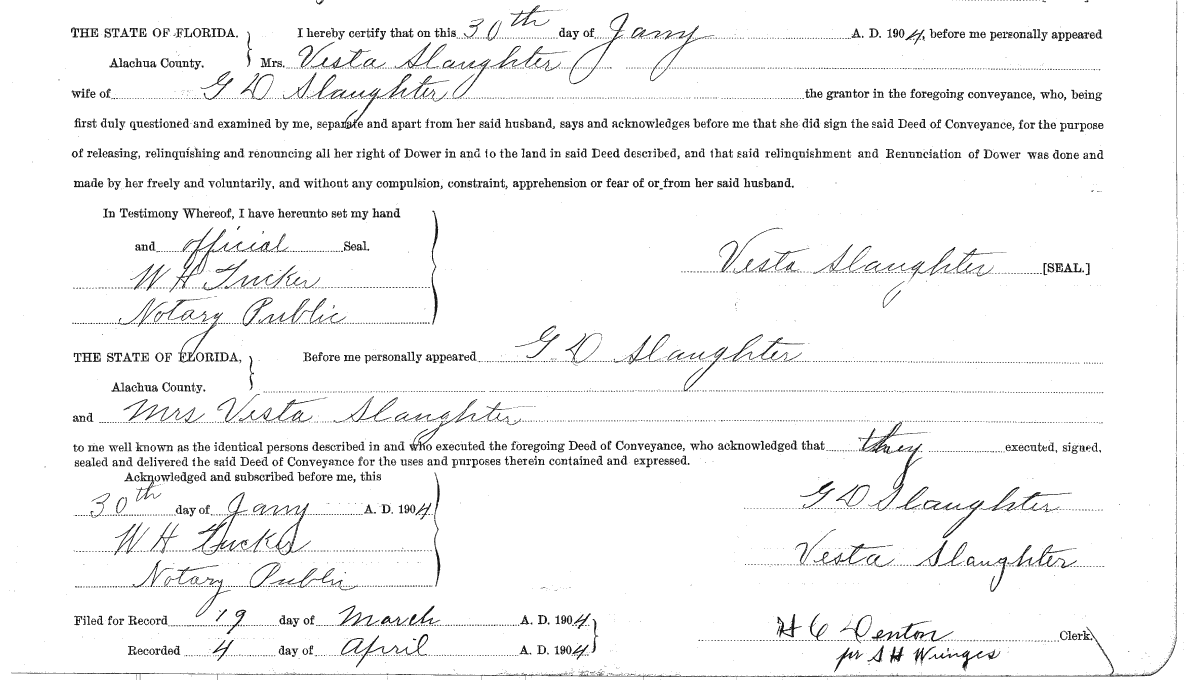 THE STATE OF FLORIDA. I hereby certify that on this 30th day of Jany A. D. 1904, before me personally appeared
Alachua County. Mrs. Vesta Slaughter
wife of G D Slaughter the grantor in the foregoing conveyance, who, being
first duly questioned and examined by me, separate and apart from her said husband, says and acknowledges before me that she did sign the said Deed of Conveyance, for the purpose
of releasing, relinquishing and renouncing all her right of Dower in and to the land in said Deed described, and that said relinquishment and Renunciation of Dower was done and
made by her freely and voluntarily, and without any compulsion, constraint, apprehension or fear of or from her said husband.
In Testimony Whereof, I have hereunto set my hand
and official Seal.
W H Tucker
Notary Public
Vesta Slaughter [SEAL.]
THE STATE OF FLORIDA, Before me personally appeared G D Slaughter
Alachua County.
and Mrs Vesta Slaughter
to me well known as the identical persons described in and who executed the foregoing Deed of Conveyance, who acknowledged that they executed, signed,
sealed and delivered the said Deed of Conveyance for the uses and purposes therein contained and expressed.
Acknowledged and subscribed before me, this
30th day of Jany A. D. 1904
W H Tucker
Notary Public
G D Slaughter
Vesta Slaughter
Filed for Record 19 day of March A. D. 1904
Recorded 4 day of April A. D. 1904
H C Denton Clerk.
pr S H Wienges